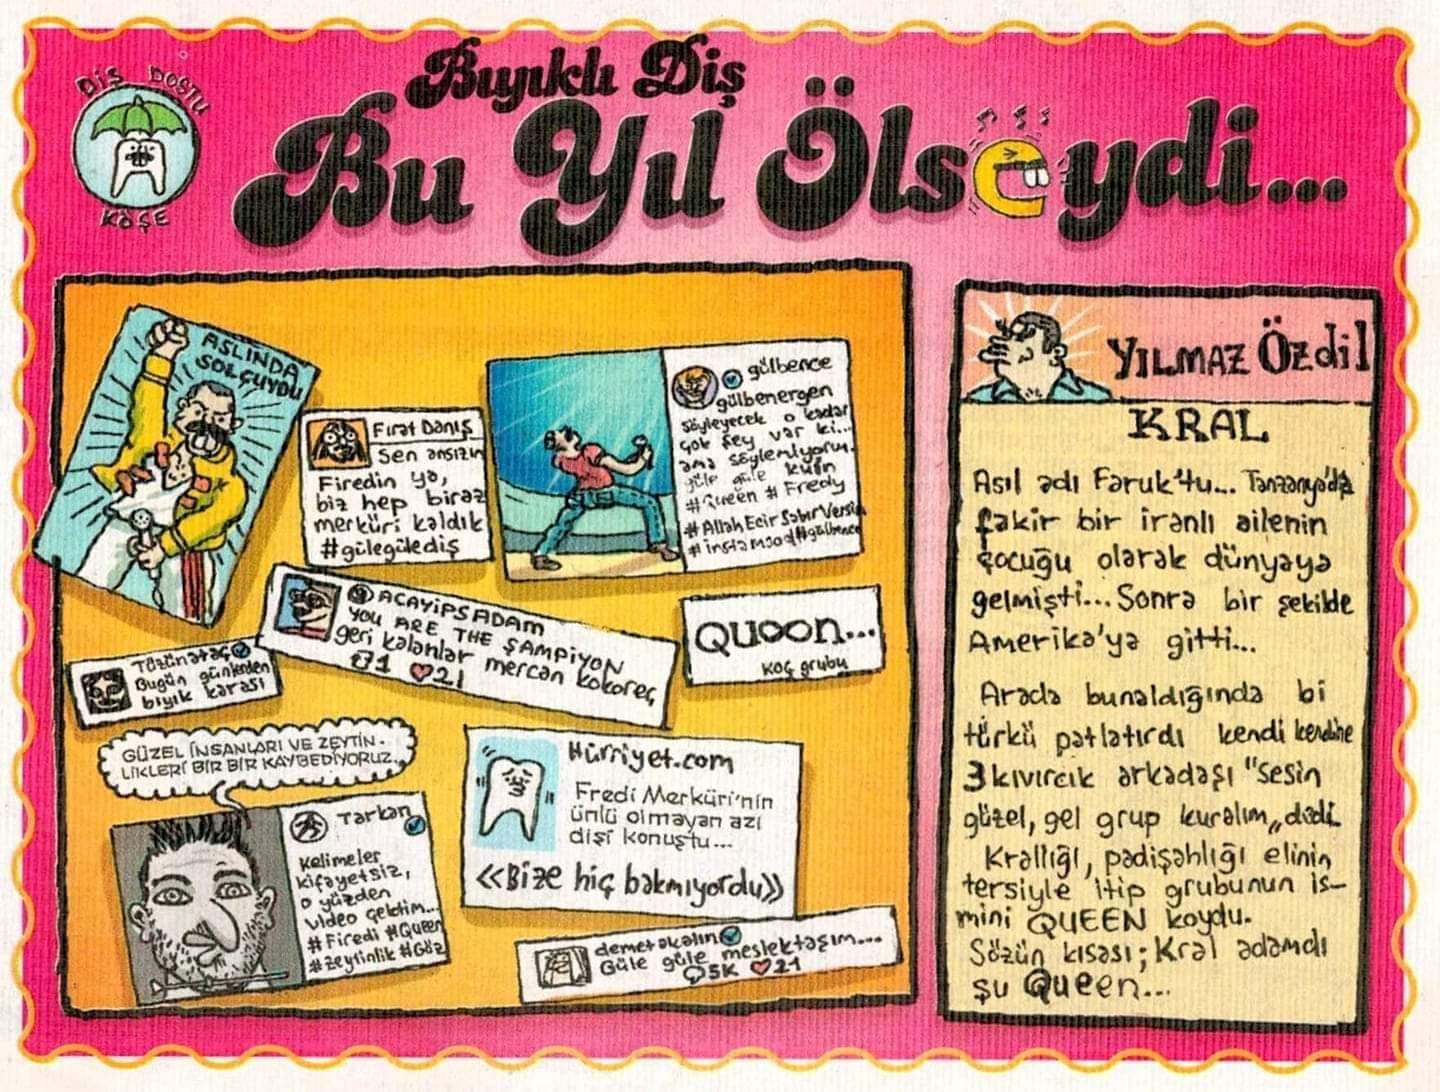 DİŞ DOSTU
KÖŞE
Bıyıklı Diş
Bu Yıl Ölseydi...
ASLINDA
SOLCUYDU
Fırat Danış
Sen ansızın
Firedin ya,
biz hep biraz
merküri kaldık
#gülegülediş
gülbence
gülbenergen
söyleyecek o kadar
çok şey var ki...
ama söylemiyorum.
güle güle kuin
#Queen # Fredy
#Allah Ecir Sabır Versin
#instamood #gülbence
@ACAYİPSADAM
YOU ARE THE ŞAMPİYON
geri kalanlar mercan kokoreç
1 21
Quoon...
Koç grubu
Tözünataç
Bugün günlerden
bıyık karası
GÜZEL İNSANLARI VE ZEYTİN-
LİKLERİ BİR BİR KAYBEDİYORUZ..
Tarkan
Kelimeler
kifayetsiz,
o yüzden
video çektim...
# Firedi #Queen
#zeytinlik #Göz
Hürriyet.com
Fredi Merküri'nin
ünlü olmayan azı
dişi konuştu...
«Bize hiç bakmıyordu»
demetakalın
Güle güle meslektaşım...
5K 21
YILMAZ ÖZdil
KRAL
Asıl adı Faruk'tu... Tanzanya'da
fakir bir iranlı ailenin
çocuğu olarak dünyaya
gelmişti... Sonra bir şekilde
Amerika'ya gitti...
Arada bunaldığında bi
türkü patlatırdı kendi kendine
3 kıvırcık arkadaşı "sesin
güzel, gel grup kuralım„ dedi.
Krallığı, padişahlığı elinin
tersiyle itip grubunun is-
mini QUEEN koydu.
Sözün kısası; Kral adamdı
şu Queen...